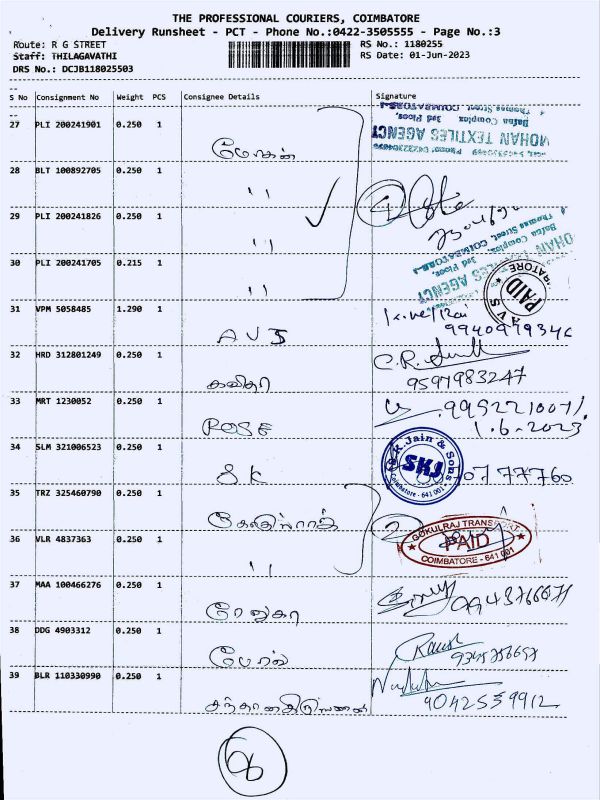 THE PROFESSIONAL COURIERS, COIMBATORE
Delivery Runsheet - PCT - Phone No.:0422-3505555 - Page No.:3
Route: R G STREET
RS No.: 1180255
Staff: THILAGAVATHI
RS Date: 01-Jun-2023
DRS No.: DCJB118025503
S No Consignment No Weight PCS Consignee Details Signature
27 PLI 200241901 0.250 1 மோகன்
MOHAN TEXTILES AGENCY
Bafna Complex, 3rd Floor,
Thomas Street, COIMBATORE-1
28 BLT 100892705 0.250 1 ,,
29 PLI 200241826 0.250 1 ,,
4
30 PLI 200241705 0.215 1 ,,
MOHAN TEXTILES AGENCY
Bafna Complex, 3rd Floor,
Thomas Street, COIMBATORE-1
PAID
31 VPM 5058485 1.290 1 AVS
32 HRD 312801249 0.250 1 கவிதா
9597983247
33 MRT 1230052 0.250 1 ROSE
1.6-2023
34 SLM 321006523 0.250 1 SK
S.K.Jain & Sons
SKJ
Coimbatore - 641 001
35 TRZ 325460790 0.250 1
2
GOKULRAJ TRANSPORT
PAID
COIMBATORE - 641 001
36 VLR 4837363 0.250 1 ,,
37 MAA 100466276 0.250 1 ரேணுகா
38 DDG 4903312 0.250 1
39 BLR 110330990 0.250 1
9042539912
8